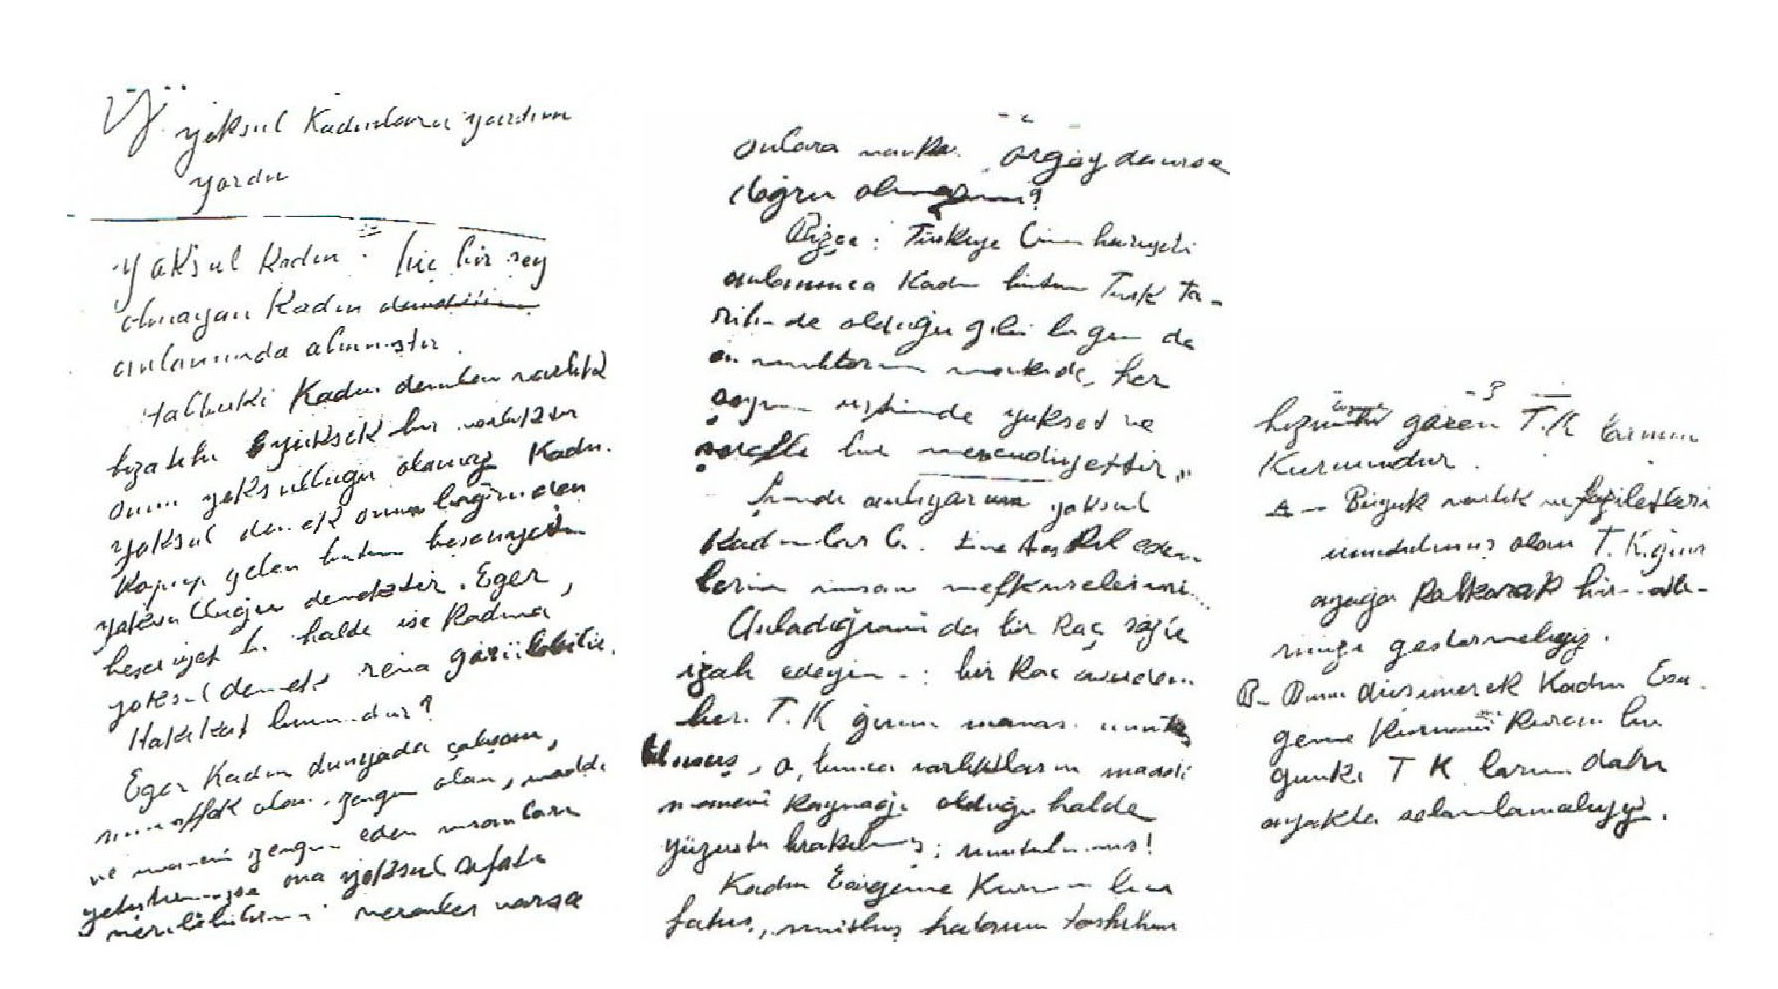 Yoksul Kadınlara yardım
yurdu
Yoksul Kadın . hiç bir şey
olmayan Kadın
anlamında alınmıştır.
Halbuki Kadın denilen varlık
bizatihi yüksek bir varlıktır
onun yoksulluğu olamaz Kadın.
yoksul demek onun bağrından
kopup gelen bütün beşeriyetin
yoksulluğu demektir. Eğer,
beşeriyet bu halde ise Kadına
yoksul demek reva görülebilir.
Hakikat bu mudur?
Eğer Kadın dünyada çalışan,
muvaffak olan, zengin olan, maddi
ve manevi zengin eden insanları
yetiştirmişse ona yoksul sıfatı
verilebilirmi verenler varsa
onlara nankör
doğru olmazmı?
Bizce : Türkiye Cumhuriyeti
anlamınca Kadın bütün Türk Ta-
rihinde olduğu gibi bugün de
en muhterem mevkide, her
şeyin üstünde yüksek ve
şerefli bir mevcudiyettir„
Şimdi anlıyorum yoksul
Kadınlar C. ine teşkil eden
lerin insan mefkurelerini...
Anladığımı da bir kaç sözle
izah edeyim - : bir kaç
ber. T.K manası
, o, bunca varlıkların maddi
manevi kaynağı olduğu halde
yüzüstü bırakılmış; unutulmuş!
Kadın Esirgeme Kurumu bu
hizmeti gören T.K
Kurumudur.
A - Büyük varlık ve faziletleri
unutulmuş olan T. K.ğını
ayağa kalkarak
göstermeliyiz.
B- Bunu düşünerek Kadın Esir
geme Kurumunu Kuran bu
günkü T K larını daha
ayakta selamlamalıyız.